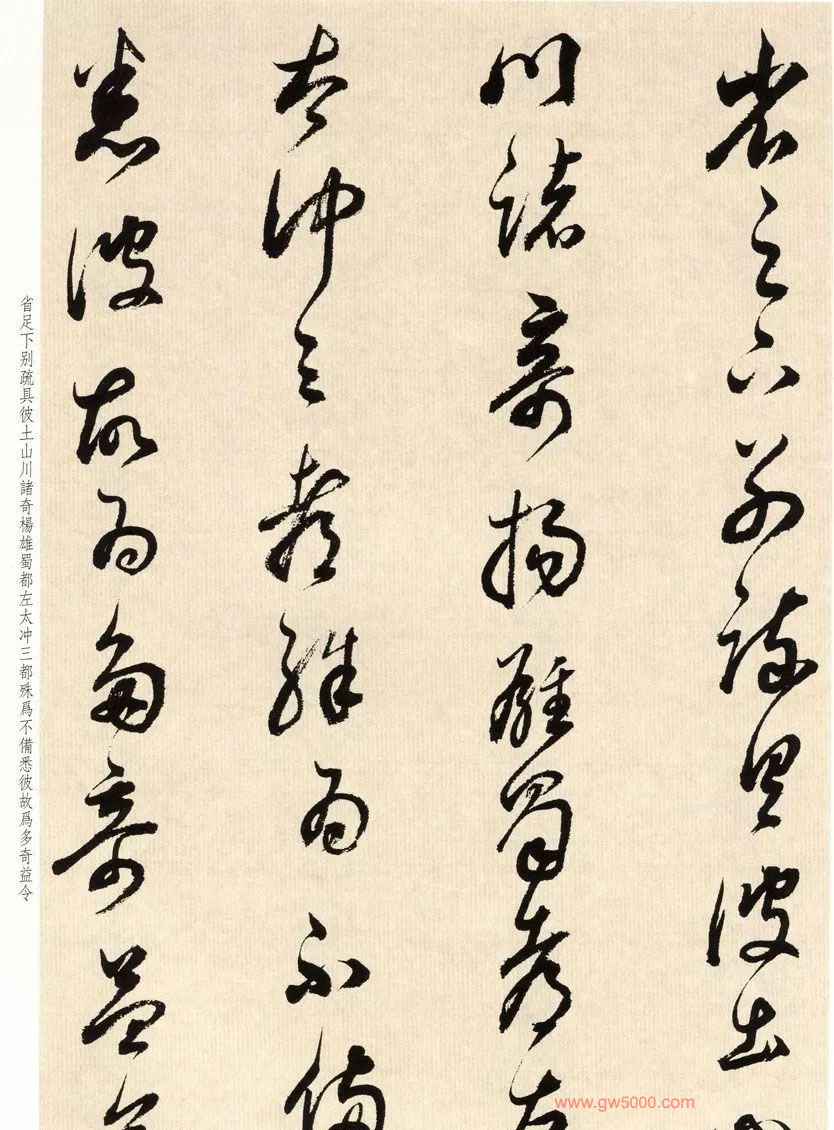 省足下别疏具彼土山
川諸奇楊雄蜀都左
太冲三都殊爲不備
悉彼故爲多奇益令
省足下别疏具彼土山川諸奇楊雄蜀都左太冲三都殊爲不備悉彼故爲多奇益令
www.gw5000.com